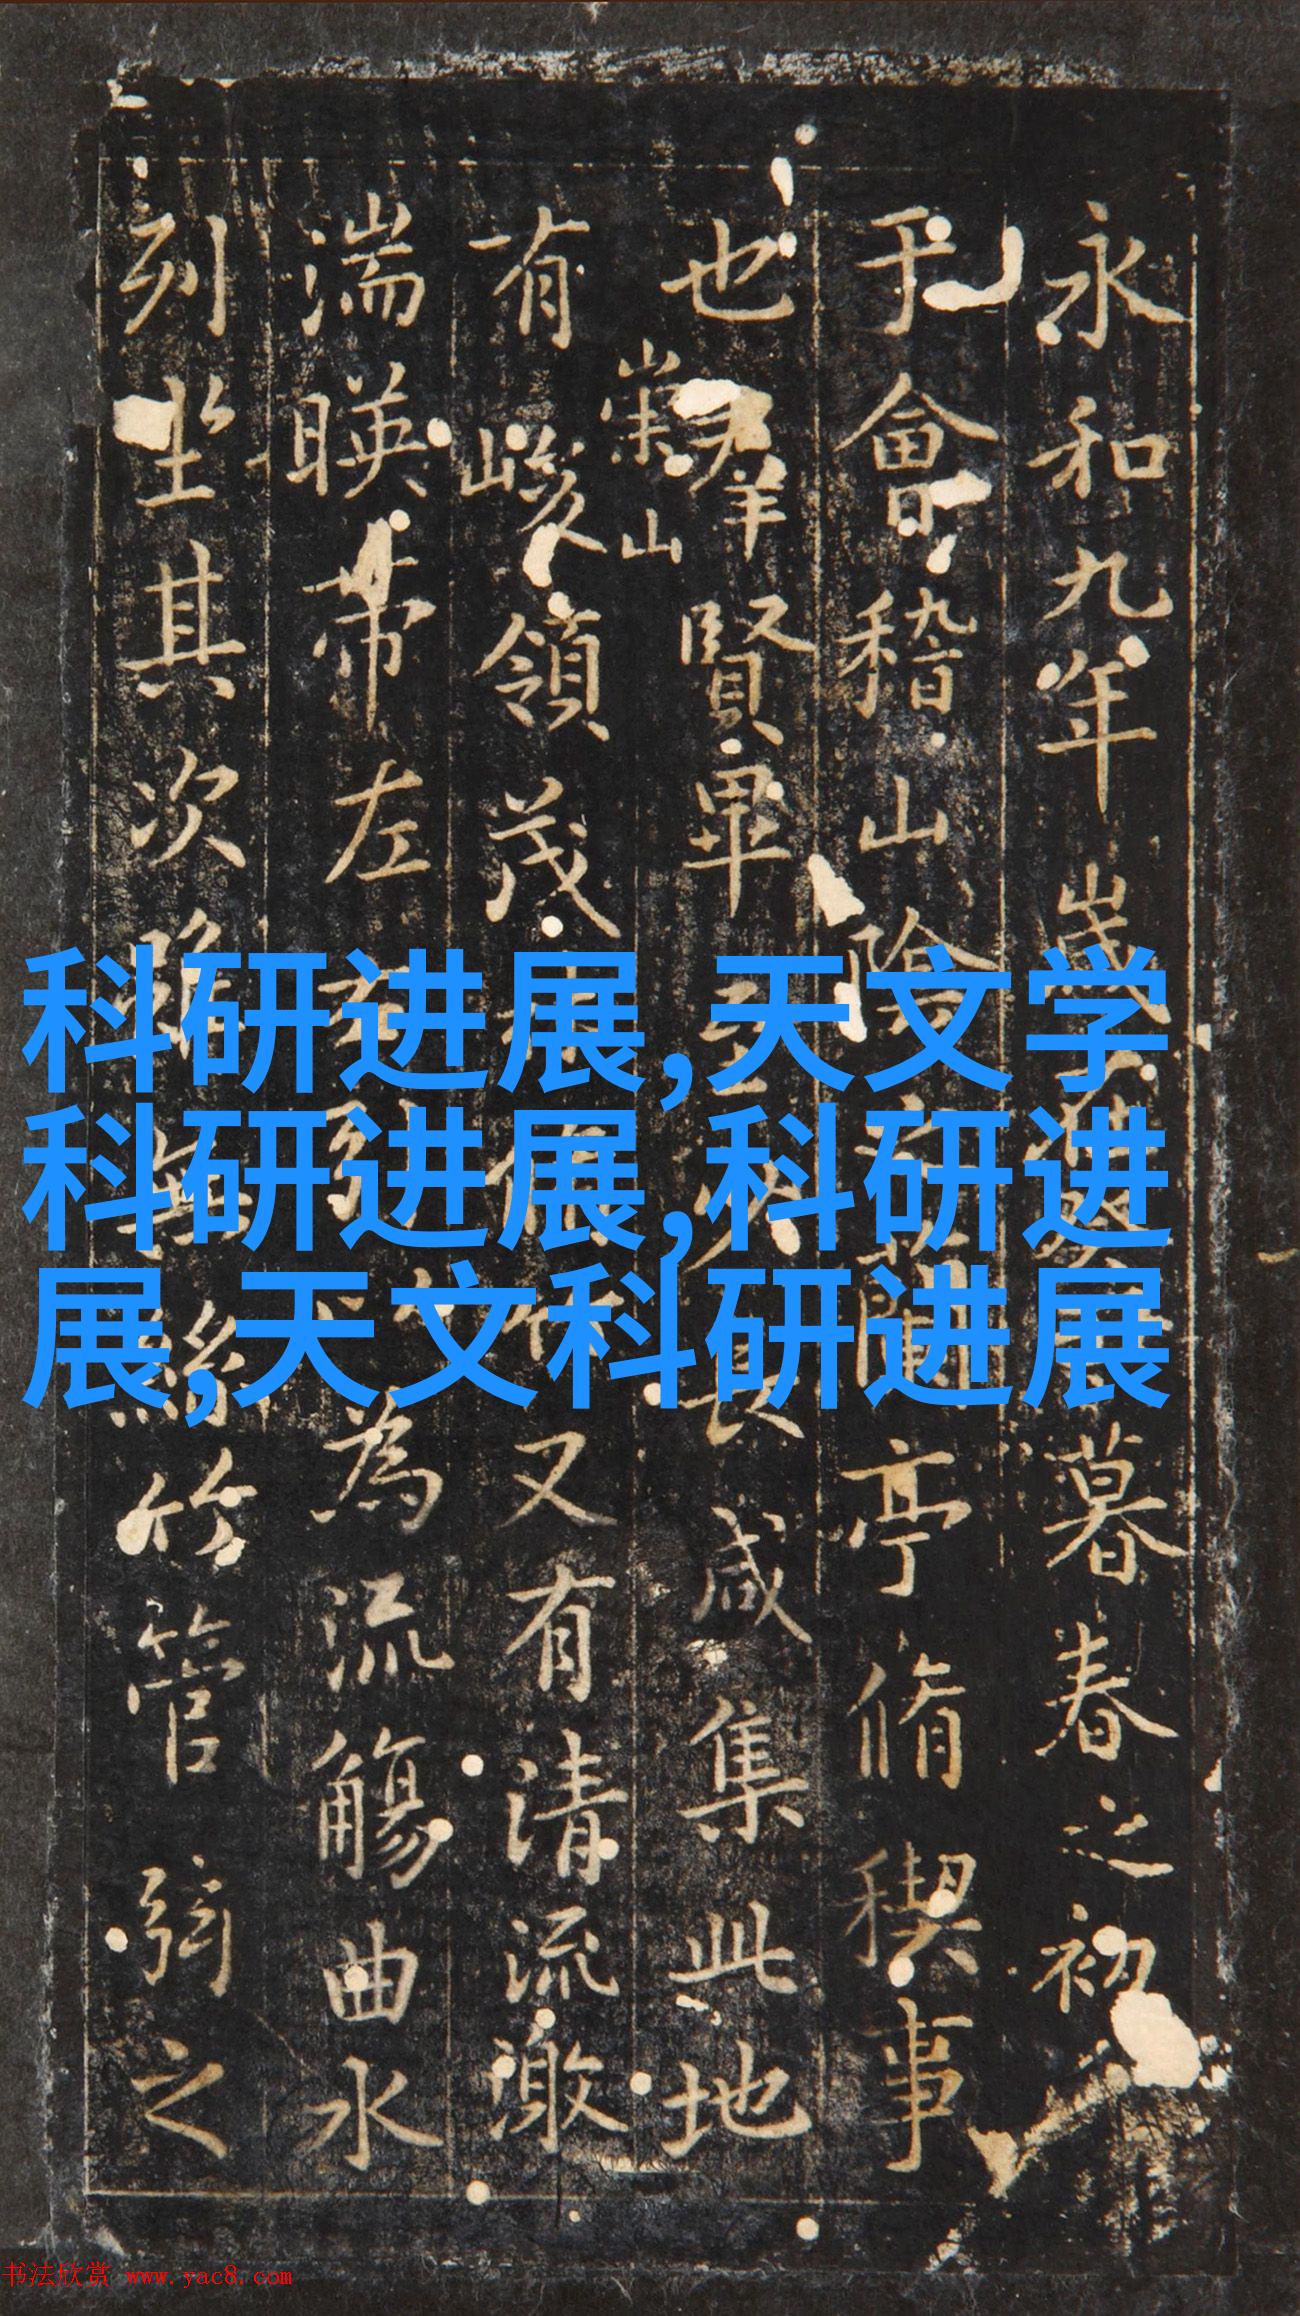 永和九年歲暮春之初
于會稽山陰蘭亭脩稧事
也羣賢畢至少長咸集此地
崇山
有峻領茂又有清流激
湍暎帶左右引為流觴曲水
列坐其次雖無絲竹管弦之
科研进展,天文学
科研进展,科研进
展,天文科研进展
书法欣赏 www.yac8.com